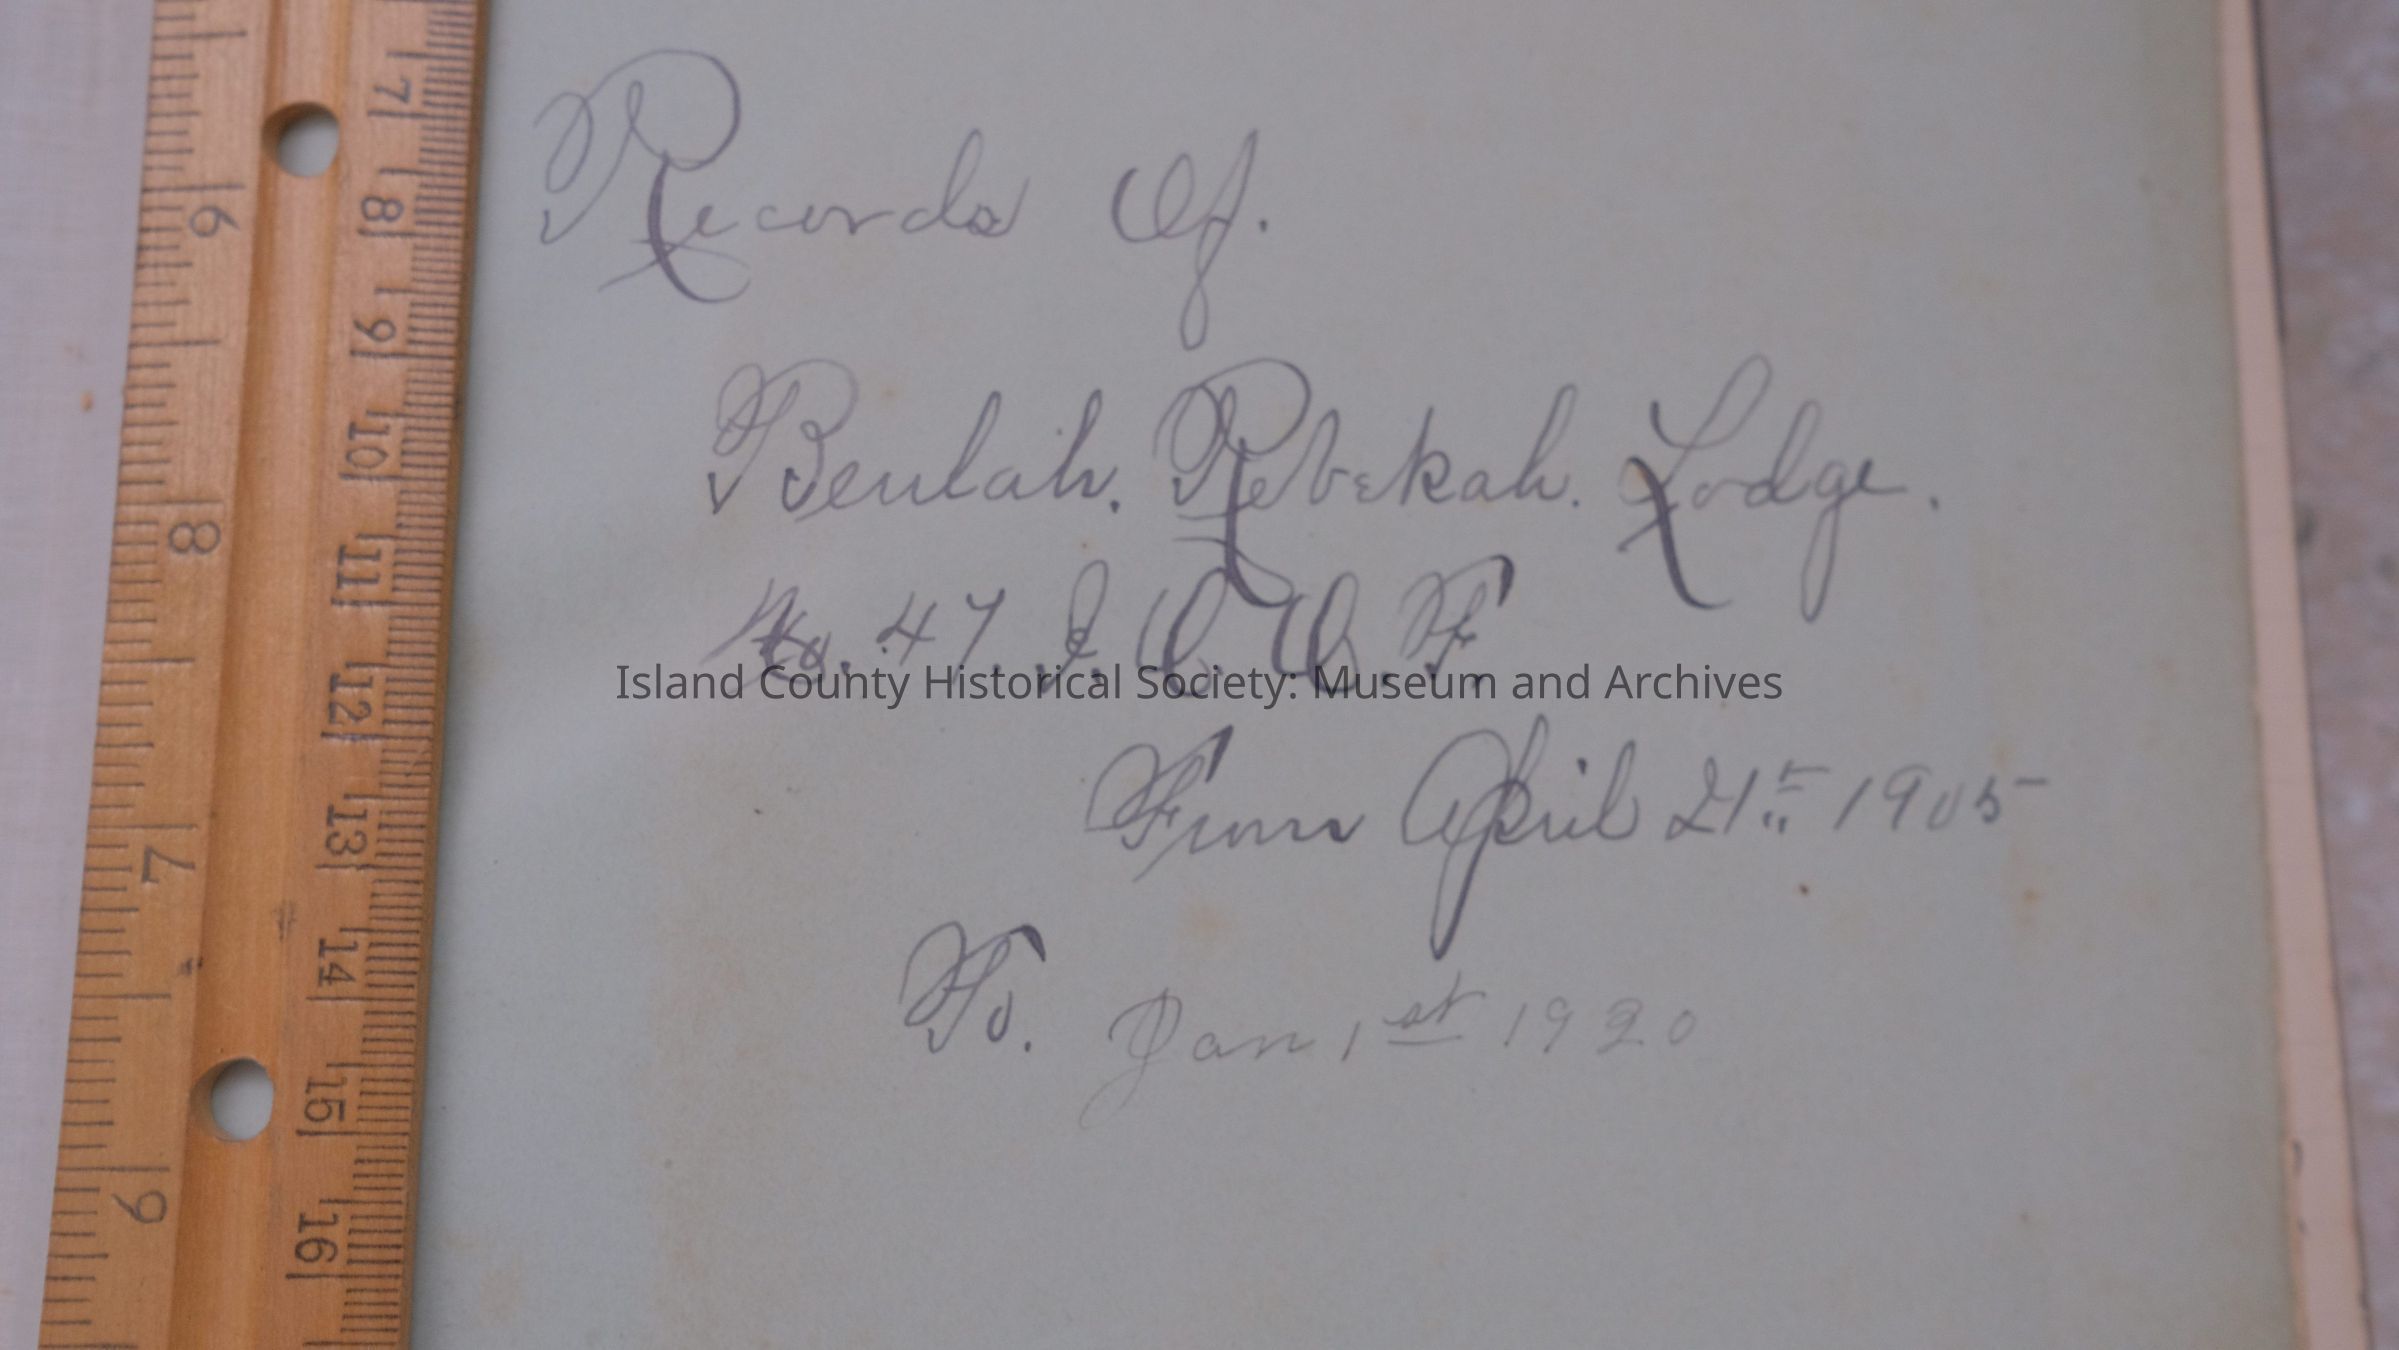 Records Of.
Beulah. Rebekah. Lodge.
No. 47. I. O. O. F.
Island County Historical Society: Museum and Archives
From April 21st 1905
To. Jan 1st 1920
7
8
9
10
11
12
13
14
15
16
6
8
7
9